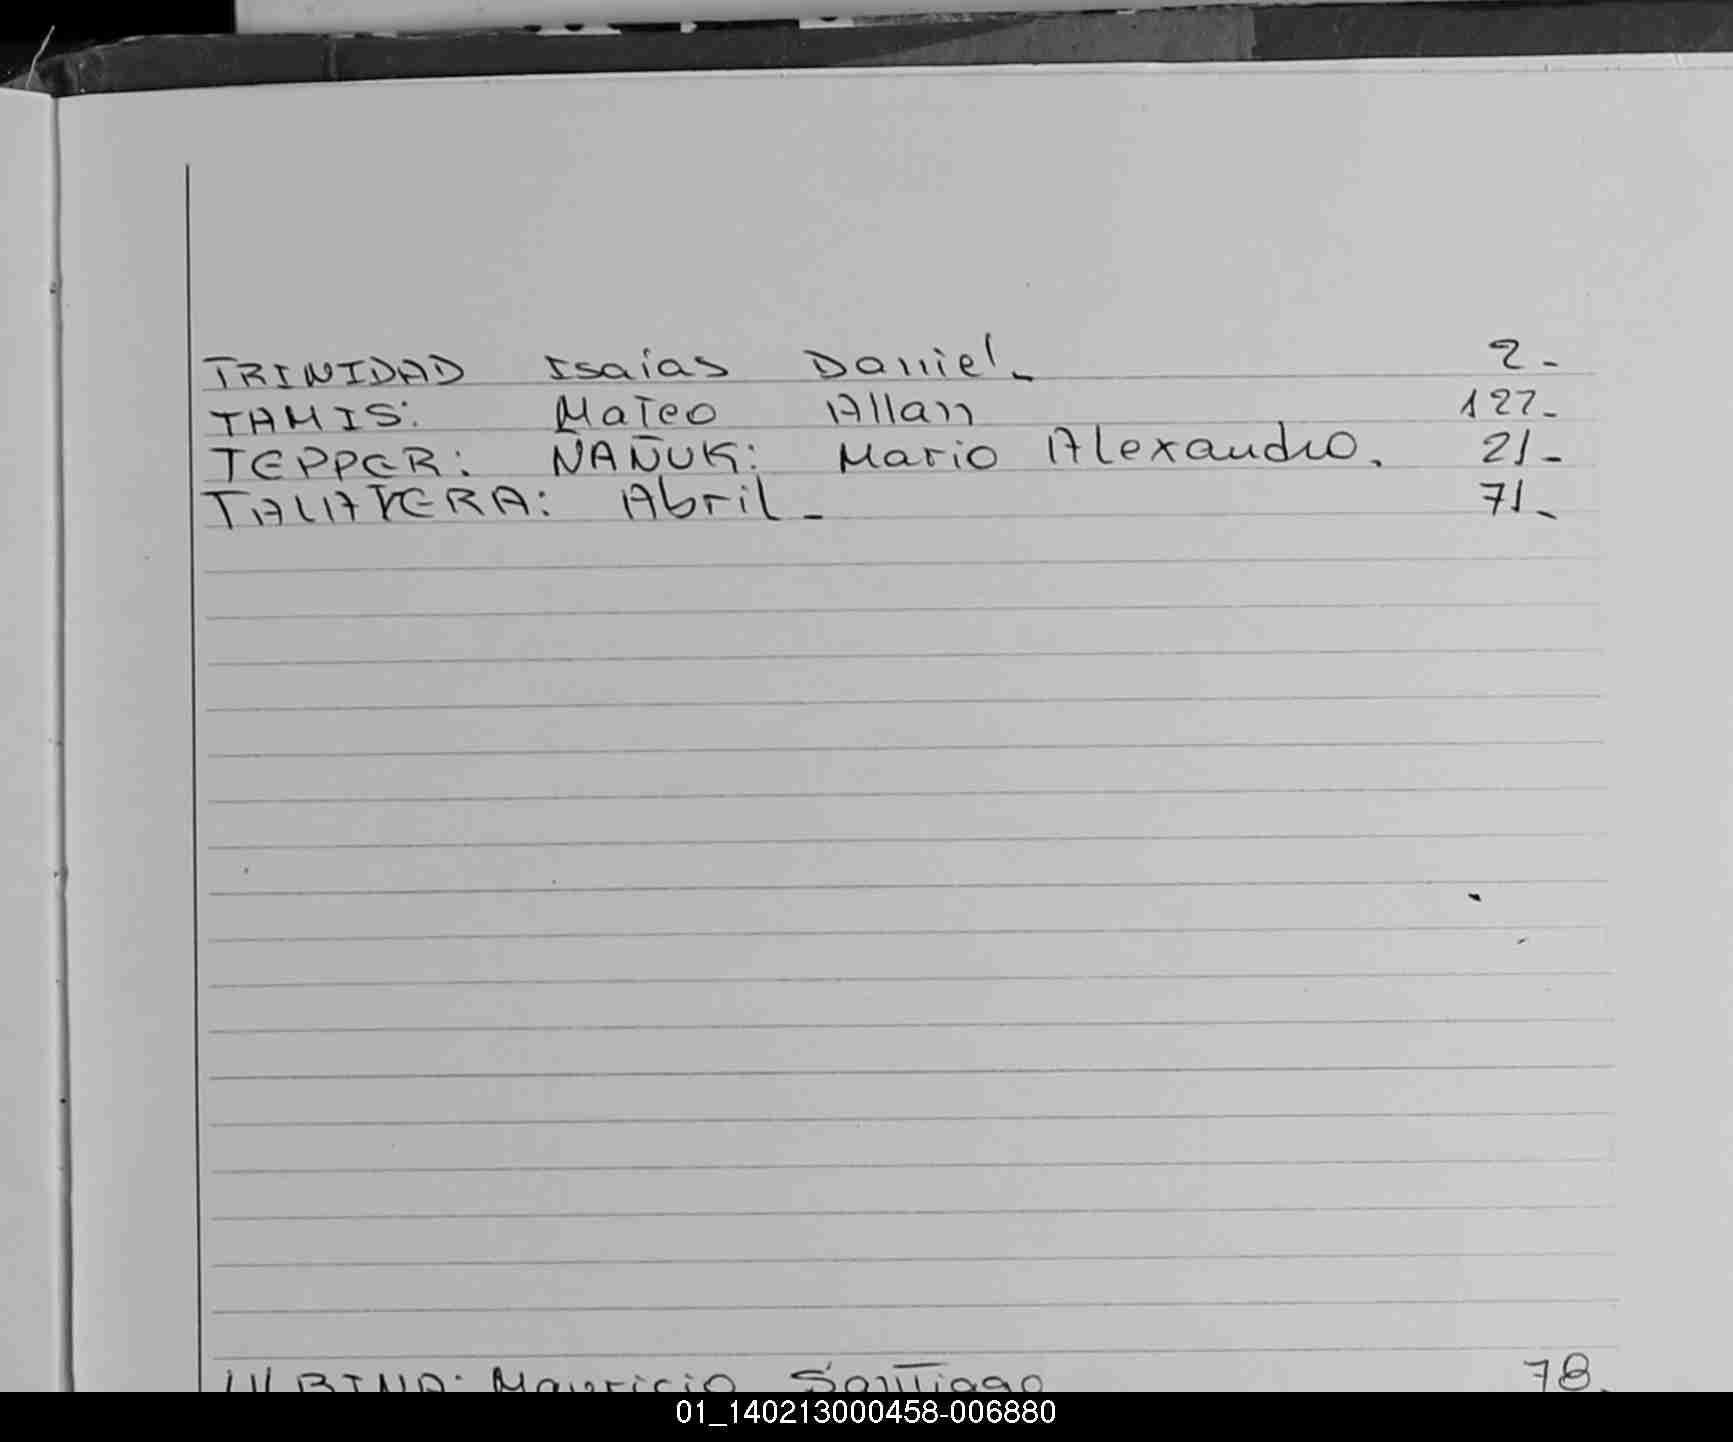 TRINIDAD Isaías Daniel_ 2_
TAMIS: Mateo Allan 127_
TEPPER: ÑAÑUK: Mario Alexandro. 21_
TALAVERA: Abril_ 71_
URBINA: Mauricio Santiago 78.
01_140213000458-006880